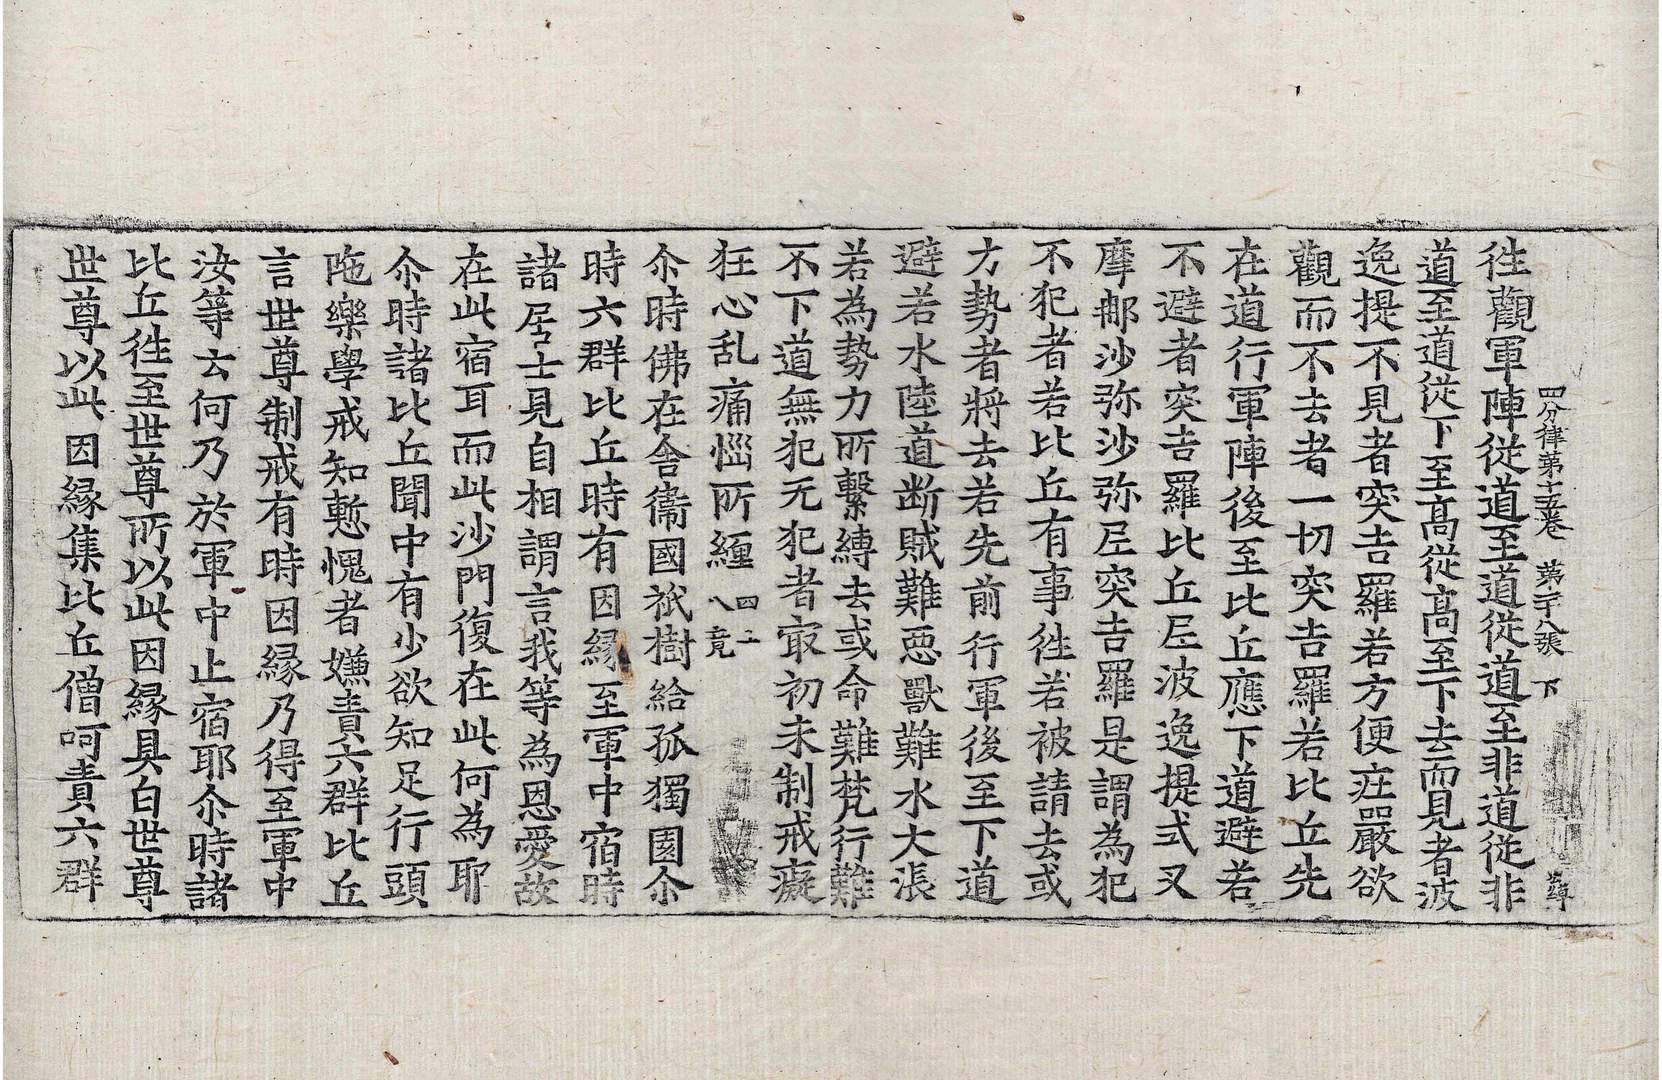 四分律第十五卷　第二十八張　下
往觀軍陣從道至道從道至非道從非
道至道從下至高從高至下去而見者波
逸提不見者突吉羅若方便㽵嚴欲
觀而不去者一切突吉羅若比丘先
在道行軍陣後至比丘應下道避若
不避者突吉羅比丘尼波逸提式叉
摩那沙弥沙弥尼突吉羅是謂為犯
不犯者若比丘有事往若被請去或
力勢者將去若先前行軍後至下道
避若水陸道断賊難惡獸難水大漲
若為勢力所繫縛去或命難梵行難
不下道無犯无犯者㝡初未制戒癡
狂心乱痛惱所纏 四十八竟
尒時佛在舍衛國祇樹給孤獨園尒
時六群比丘時有因緣至軍中宿時
諸居士見自相謂言我等為恩愛故
在此宿耳而此沙門復在此何為耶
尒時諸比丘聞中有少欲知足行頭
陁樂學戒知慙愧者嫌責六群比丘
言世尊制戒有時因緣乃得至軍中
汝等云何乃於軍中止宿耶尒時諸
比丘往至世尊所以此因緣具白世尊
世尊以此因緣集比丘僧呵責六群